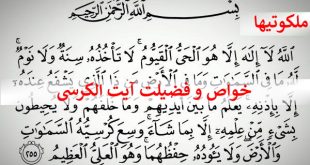 ملکوتیها
بِسْمِ اللَّهِ الرَّحْمَٰنِ الرَّحِيمِ
اللَّهُ لَا إِلَٰهَ إِلَّا هُوَ الْحَيُّ الْقَيُّومُ ۚ لَا تَأْخُذُهُ سِنَةٌ وَلَا نَوْمٌ ۚ
لَّهُ مَا فِي السَّمَٰوَٰتِ وَمَا فِي الْأَرْضِ ۗ مَن ذَا الَّذِي يَشْفَعُ عِندَهُ
خواص و فضیلت آیت الکرسی
إِلَّا بِإِذْنِهِ ۚ يَعْلَمُ مَا بَيْنَ أَيْدِيهِمْ وَمَا خَلْفَهُمْ ۖ وَلَا يُحِيطُونَ
بِشَيْءٍ مِّنْ عِلْمِهِ إِلَّا بِمَا شَاءَ ۚ وَسِعَ كُرْسِيُّهُ السَّمَٰوَٰتِ
وَالْأَرْضَ ۖ وَلَا يَئُودُهُ حِفْظُهُمَا ۚ وَهُوَ الْعَلِيُّ الْعَظِيمُ ٢٥٥